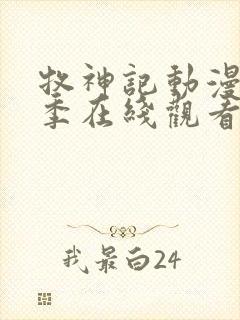 牧神記動漫
季在綫觀看
我最白24